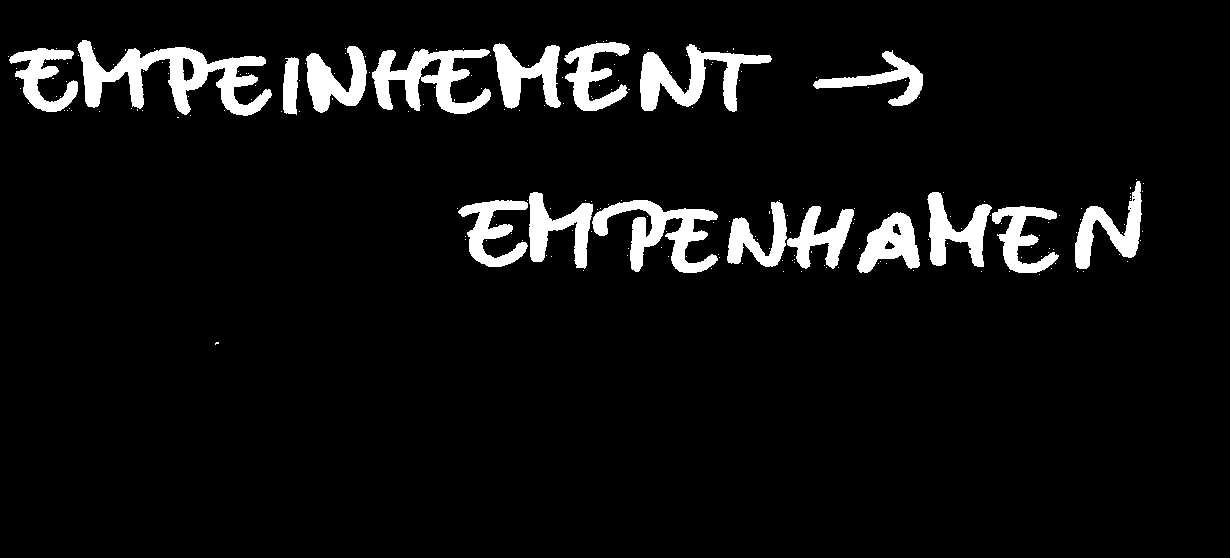 EMPEINHEMENT →
EMPENHAMEN